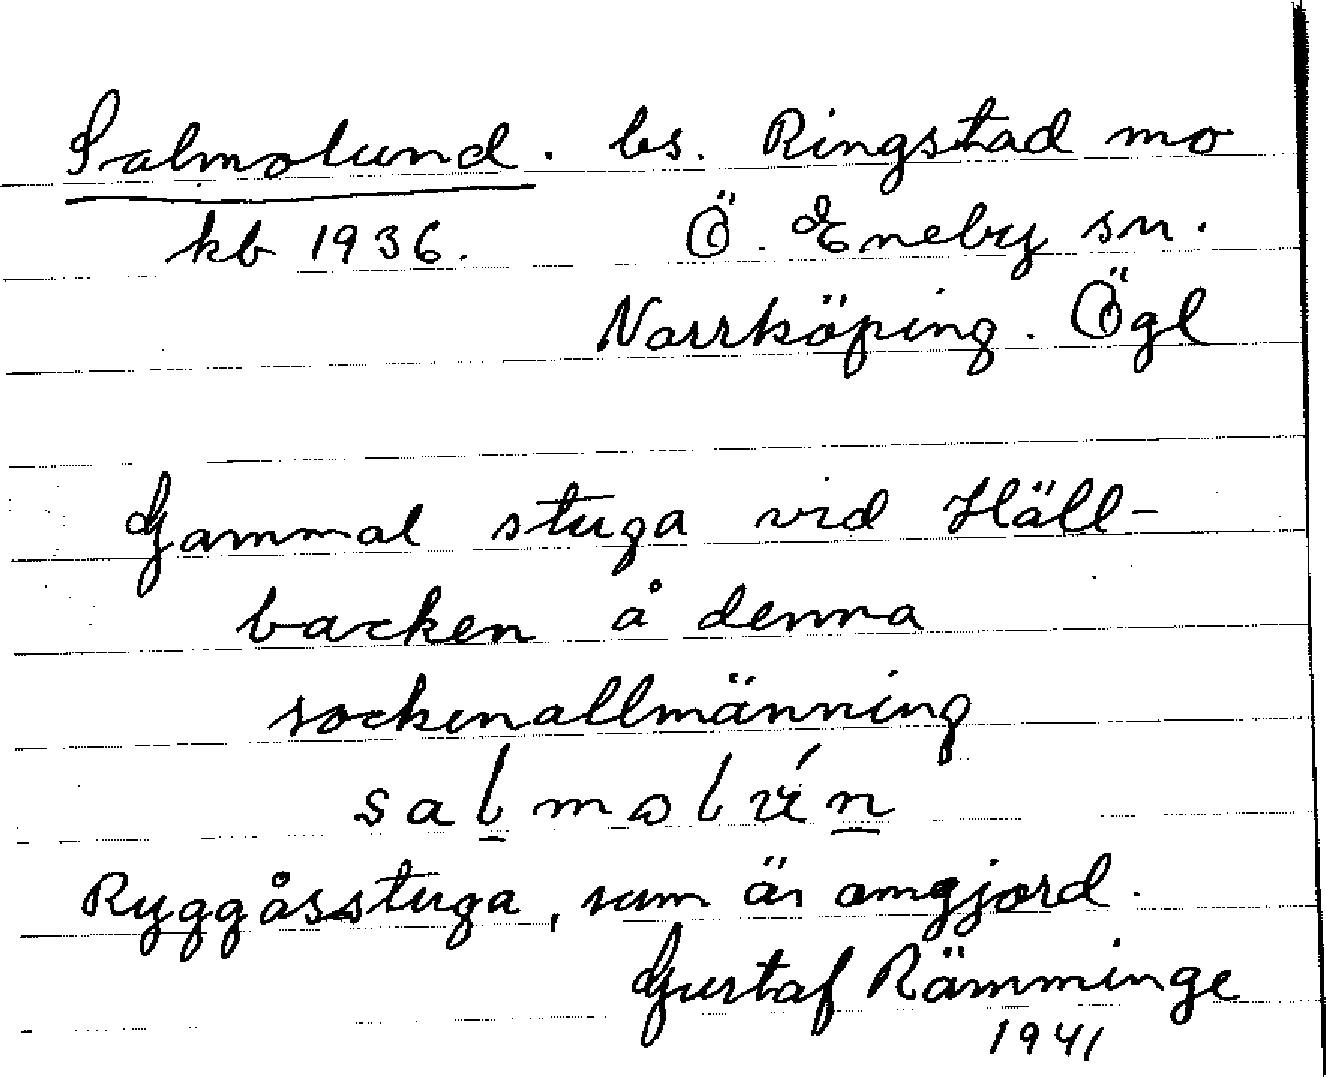 Salmolund. ls. Ringstad mo
kb 1936. Ö. Eneby sn.
Norrköping. Ögl
Gammal stuga vid Häll-
backen å denna
sockenallmänning
salmolún
Ryggåsstuga, som är omgjord.
Gustaf Rämminge
1941